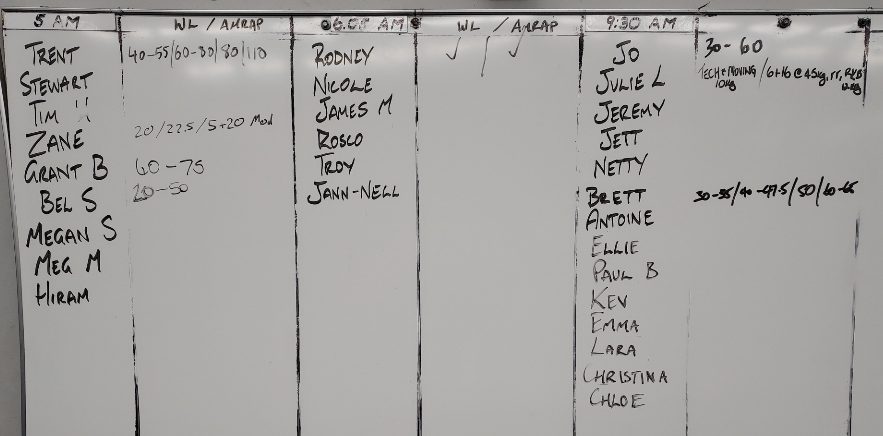 5 AM
WL / AMRAP
TRENT 40-55/60-80/80/110
STEWART
TIM
ZANE 20/22.5/5+20 MOD
GRANT B 60-75
BEL S 20-50
MEGAN S
MEG M
HIRAM
AM
WL / AMRAP
RODNEY ✓ / ✓
NICOLE
JAMES M
ROSCO
TROY
JANN-NELL
9:30 AM
JO 30-60
JULIE L TECH+MOVING / 6+16 @ 45kg, rr,
10kg
JEREMY
JETT
NETTY
BRETT 30-35/40-47.5/50/60-65
ANTOINE
ELLIE
PAUL B
KEV
EMMA
LARA
CHRISTINA
CHLOE